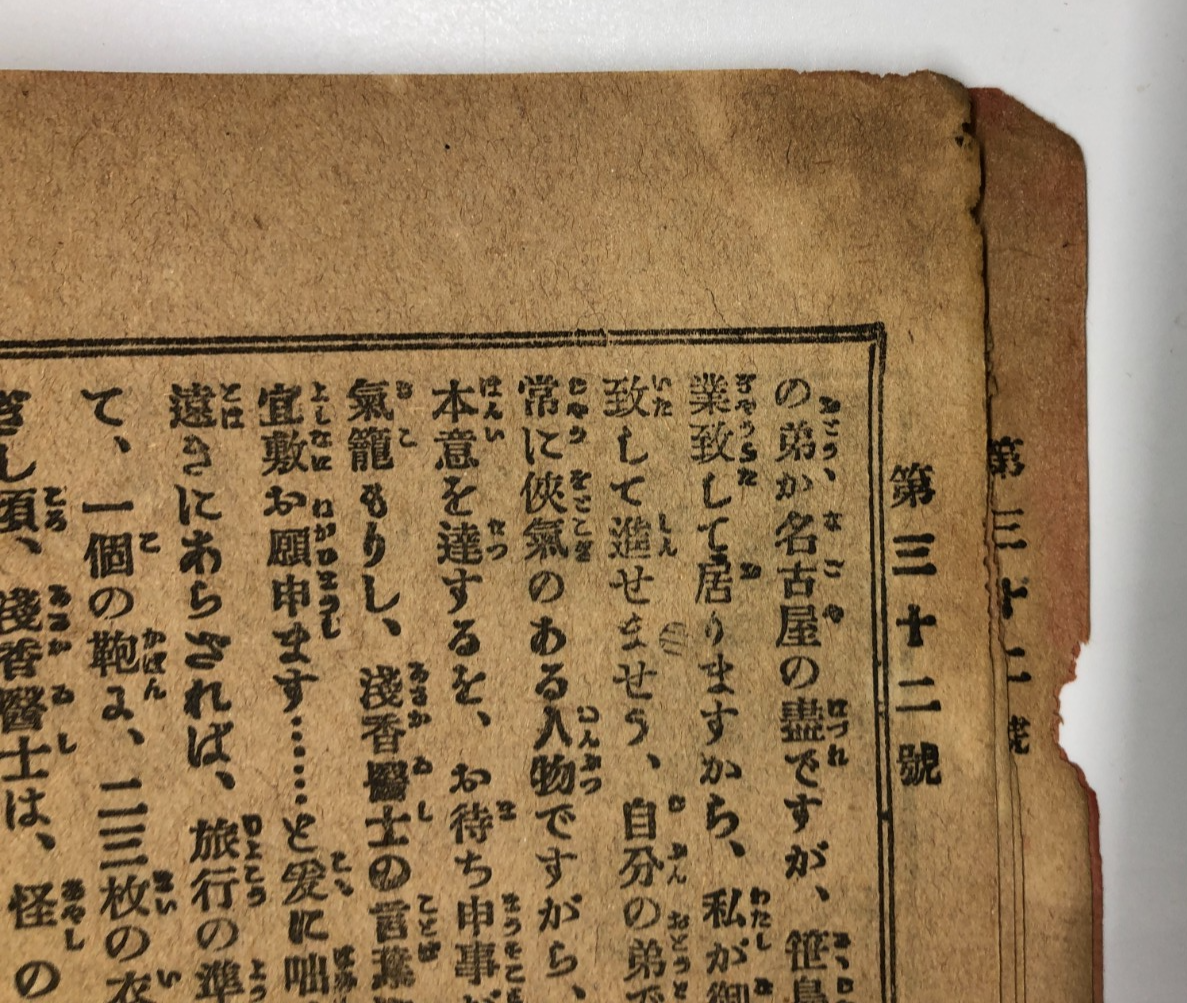 第三十二號
第三十二號
の弟か名古屋の盡れですが、笹島
業致して居りますから、私が御
致して進せませう、自分の弟で
常に俠氣のある人物ですがら、
本意を達するを、お待ち申事が
氣籠もりし、淺香醫士の言葉
宜敷お願申ます……と爰に咄
遠きにあらざれば、旅行の準
て、一個の鞄に、二三枚の衣
ぎし頃、淺香醫士は、怪の